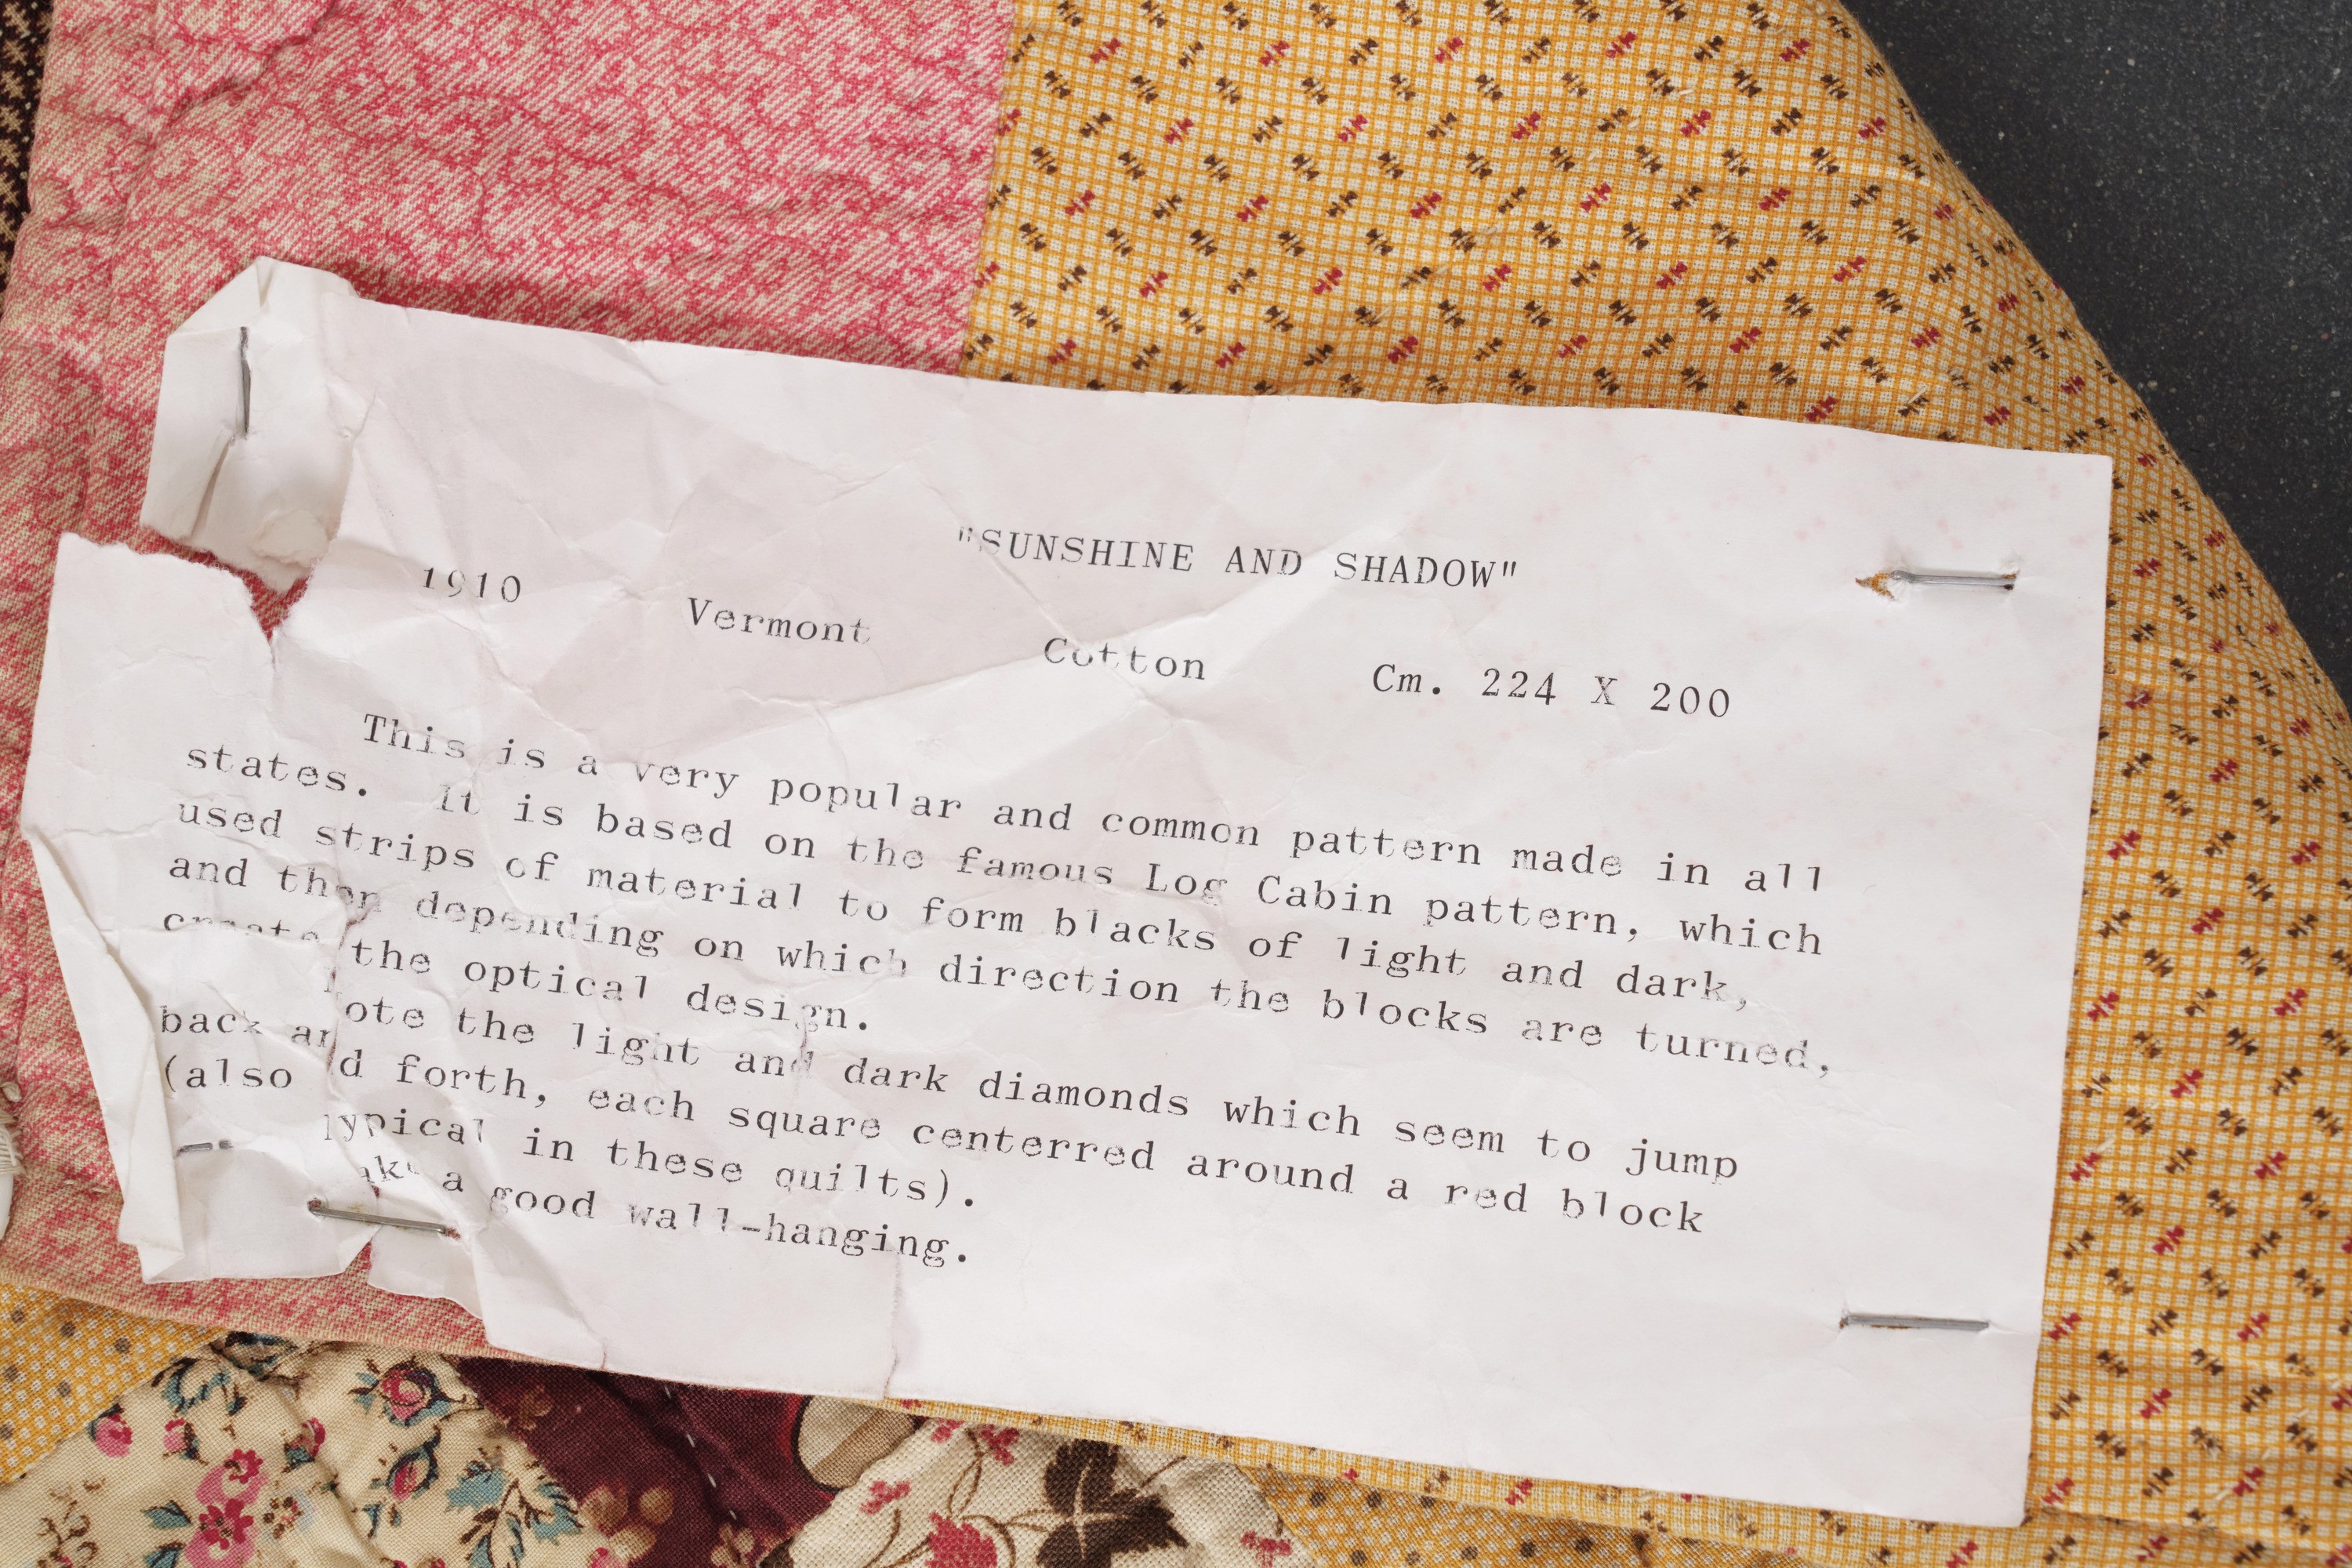 "SUNSHINE AND SHADOW"
1910 Vermont Cotton Cm. 224 X 200
This is a very popular and common pattern made in all
states. It is based on the famous Log Cabin pattern, which
used strips of material to form blacks of light and dark,
and then depending on which direction the blocks are turned,
create the optical design.
ote the light and dark diamonds which seem to jump
back and forth, each square centerred around a red block
(also typical in these quilts).
a good wall-hanging.